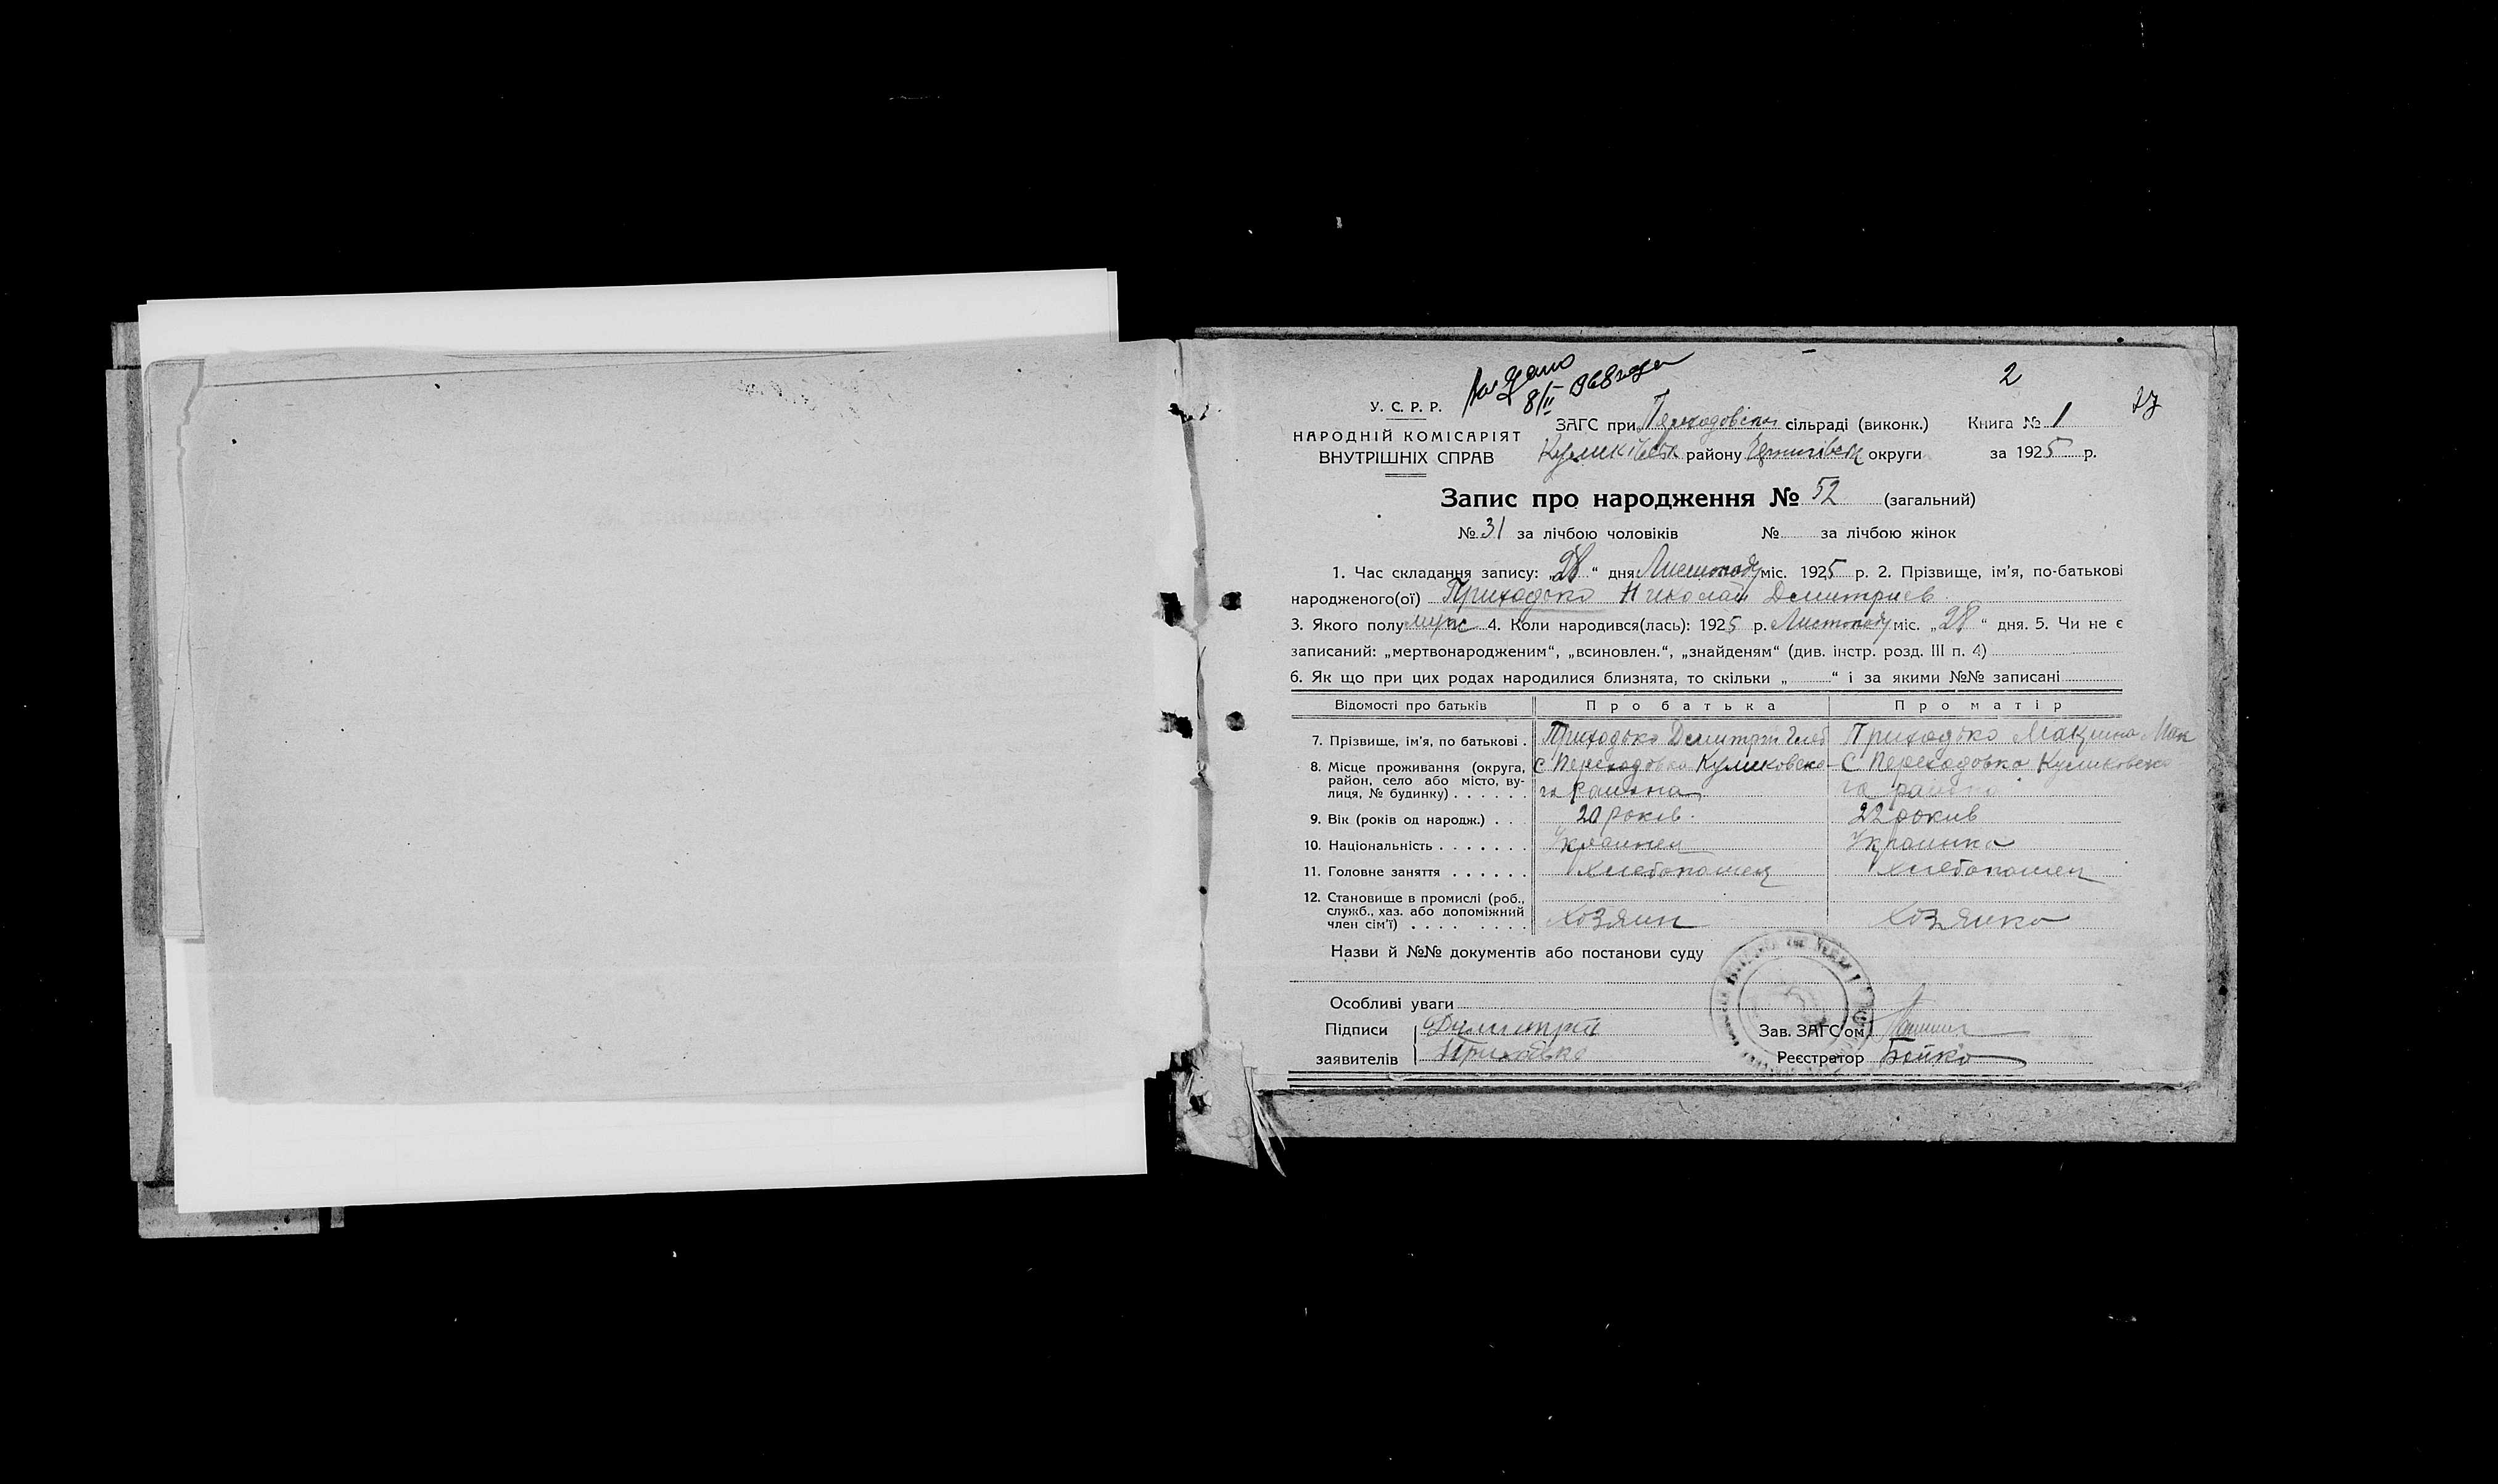 8/II 1968 года
2
У. С. Р. Р.
НАРОДНІЙ КОМІСАРІЯТ
ВНУТРІШНІХ СПРАВ
ЗАГС при сільраді (виконк.)
району округи
Книга № 1
за 1925 р.
Запис про народження № 52 (загальний)
№ 31 за лічбою чоловіків № за лічбою жінок
1. Час складання запису: „28“ дня Листопаду міс. 1925 р. 2. Прізвище, ім’я, по-батькові
народженого(ої) Приходько Николай Демитриев
3. Якого полу муж 4. Коли народився(лась): 1925 р. Листопаду міс. „28“ дня. 5. Чи не є
записаний: „мертвонародженим“, „всиновлен.“, „знайденям“ (див. інстр. розд. III п. 4)
6. Як що при цих родах народилися близнята, то скільки „ “ і за якими №№ записані
Відомості про батьків Про батька Про матір
7. Прізвище, ім’я, по батькові . Приходько Демитрий Глеб Приходько Мак
8. Місце проживання (округа, С Переходовка Куликовско- С Переходовка Куликовско
район, село або місто, ву-
лиця, № будинку) . . . . . . го района го района
9. Вік (років од народж.) . . . 20 років. 22 рокив
10. Національність . . . . . . . Украинец Украинка
11. Головне заняття . . . . . . Хлебопашец хлебопашец
12. Становище в промислі (роб.,
служб., хаз. або допоміжний
член сім’ї) . . . . . . . . Хозяин Хозяйка
Назви й №№ документів або постанови суду
Особливі уваги
Підписи Димитрий
заявителів Приходько
Зав. ЗАГС’ом
Реєстратор Бойко